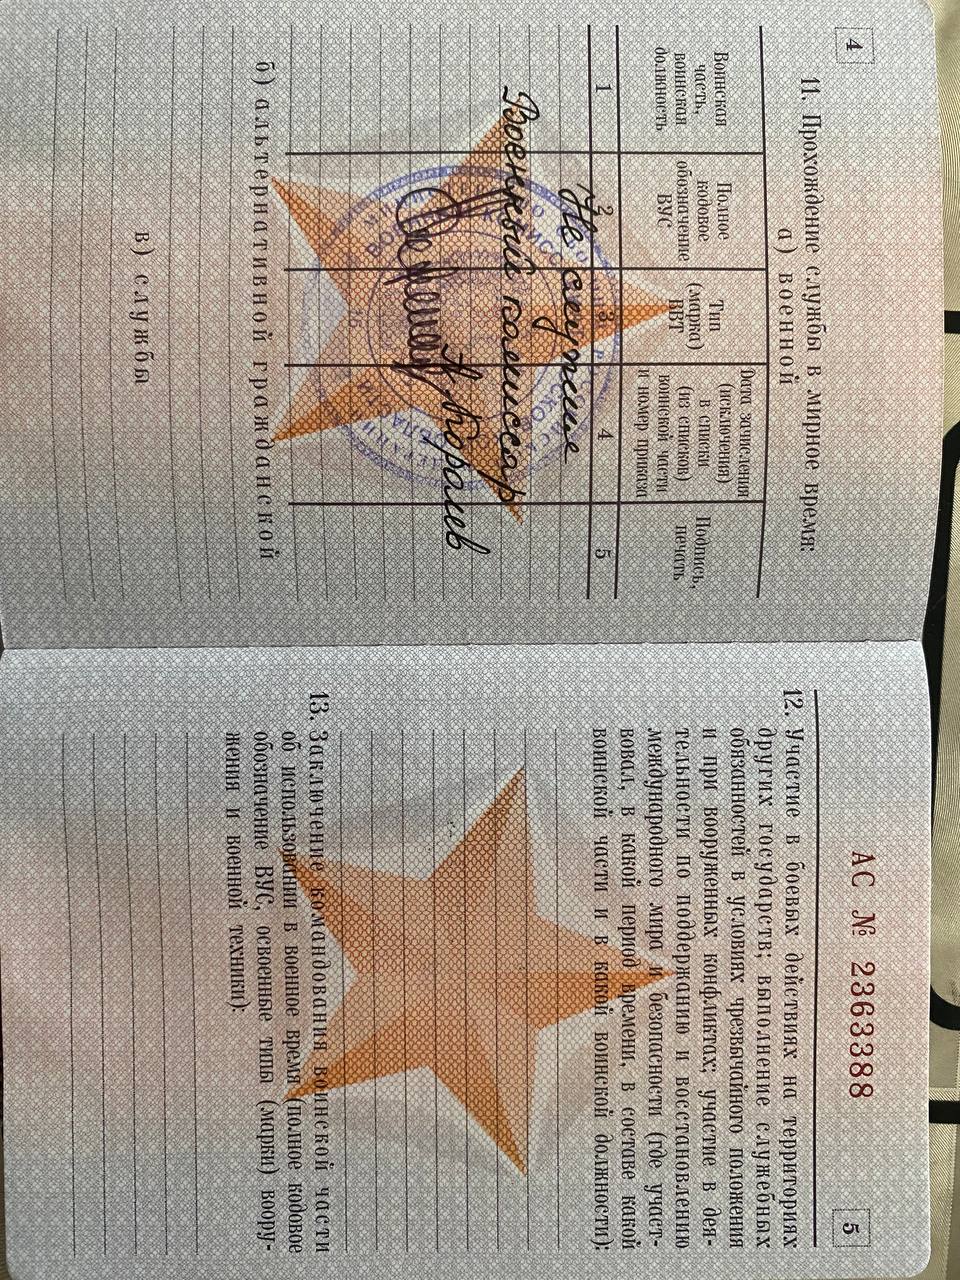 4
11. Прохождение службы в мирное время:
а) военной
Воинская
часть,
воинская
должность
Полное
кодовое
обозначение
ВУС
Тип
(марка)
ВВТ
Дата зачисления
(исключения)
в списки
(из списков)
воинской части
и номер приказа
Подпись,
печать
1 2 3 4 5
Не служил
Военный комиссар
б) альтернативной гражданской
в) службы
АС № 2363388
5
12. Участие в боевых действиях на территориях
других государств; выполнение служебных
обязанностей в условиях чрезвычайного положения
и при вооруженных конфликтах; участие в дея-
тельности по поддержанию и восстановлению
международного мира и безопасности (где участ-
вовал, в какой период времени, в составе какой
воинской части и в какой воинской должности):
13. Заключение командования воинской части
об использовании в военное время (полное кодовое
обозначение ВУС, освоенные типы (марки) воору-
жения и военной техники):